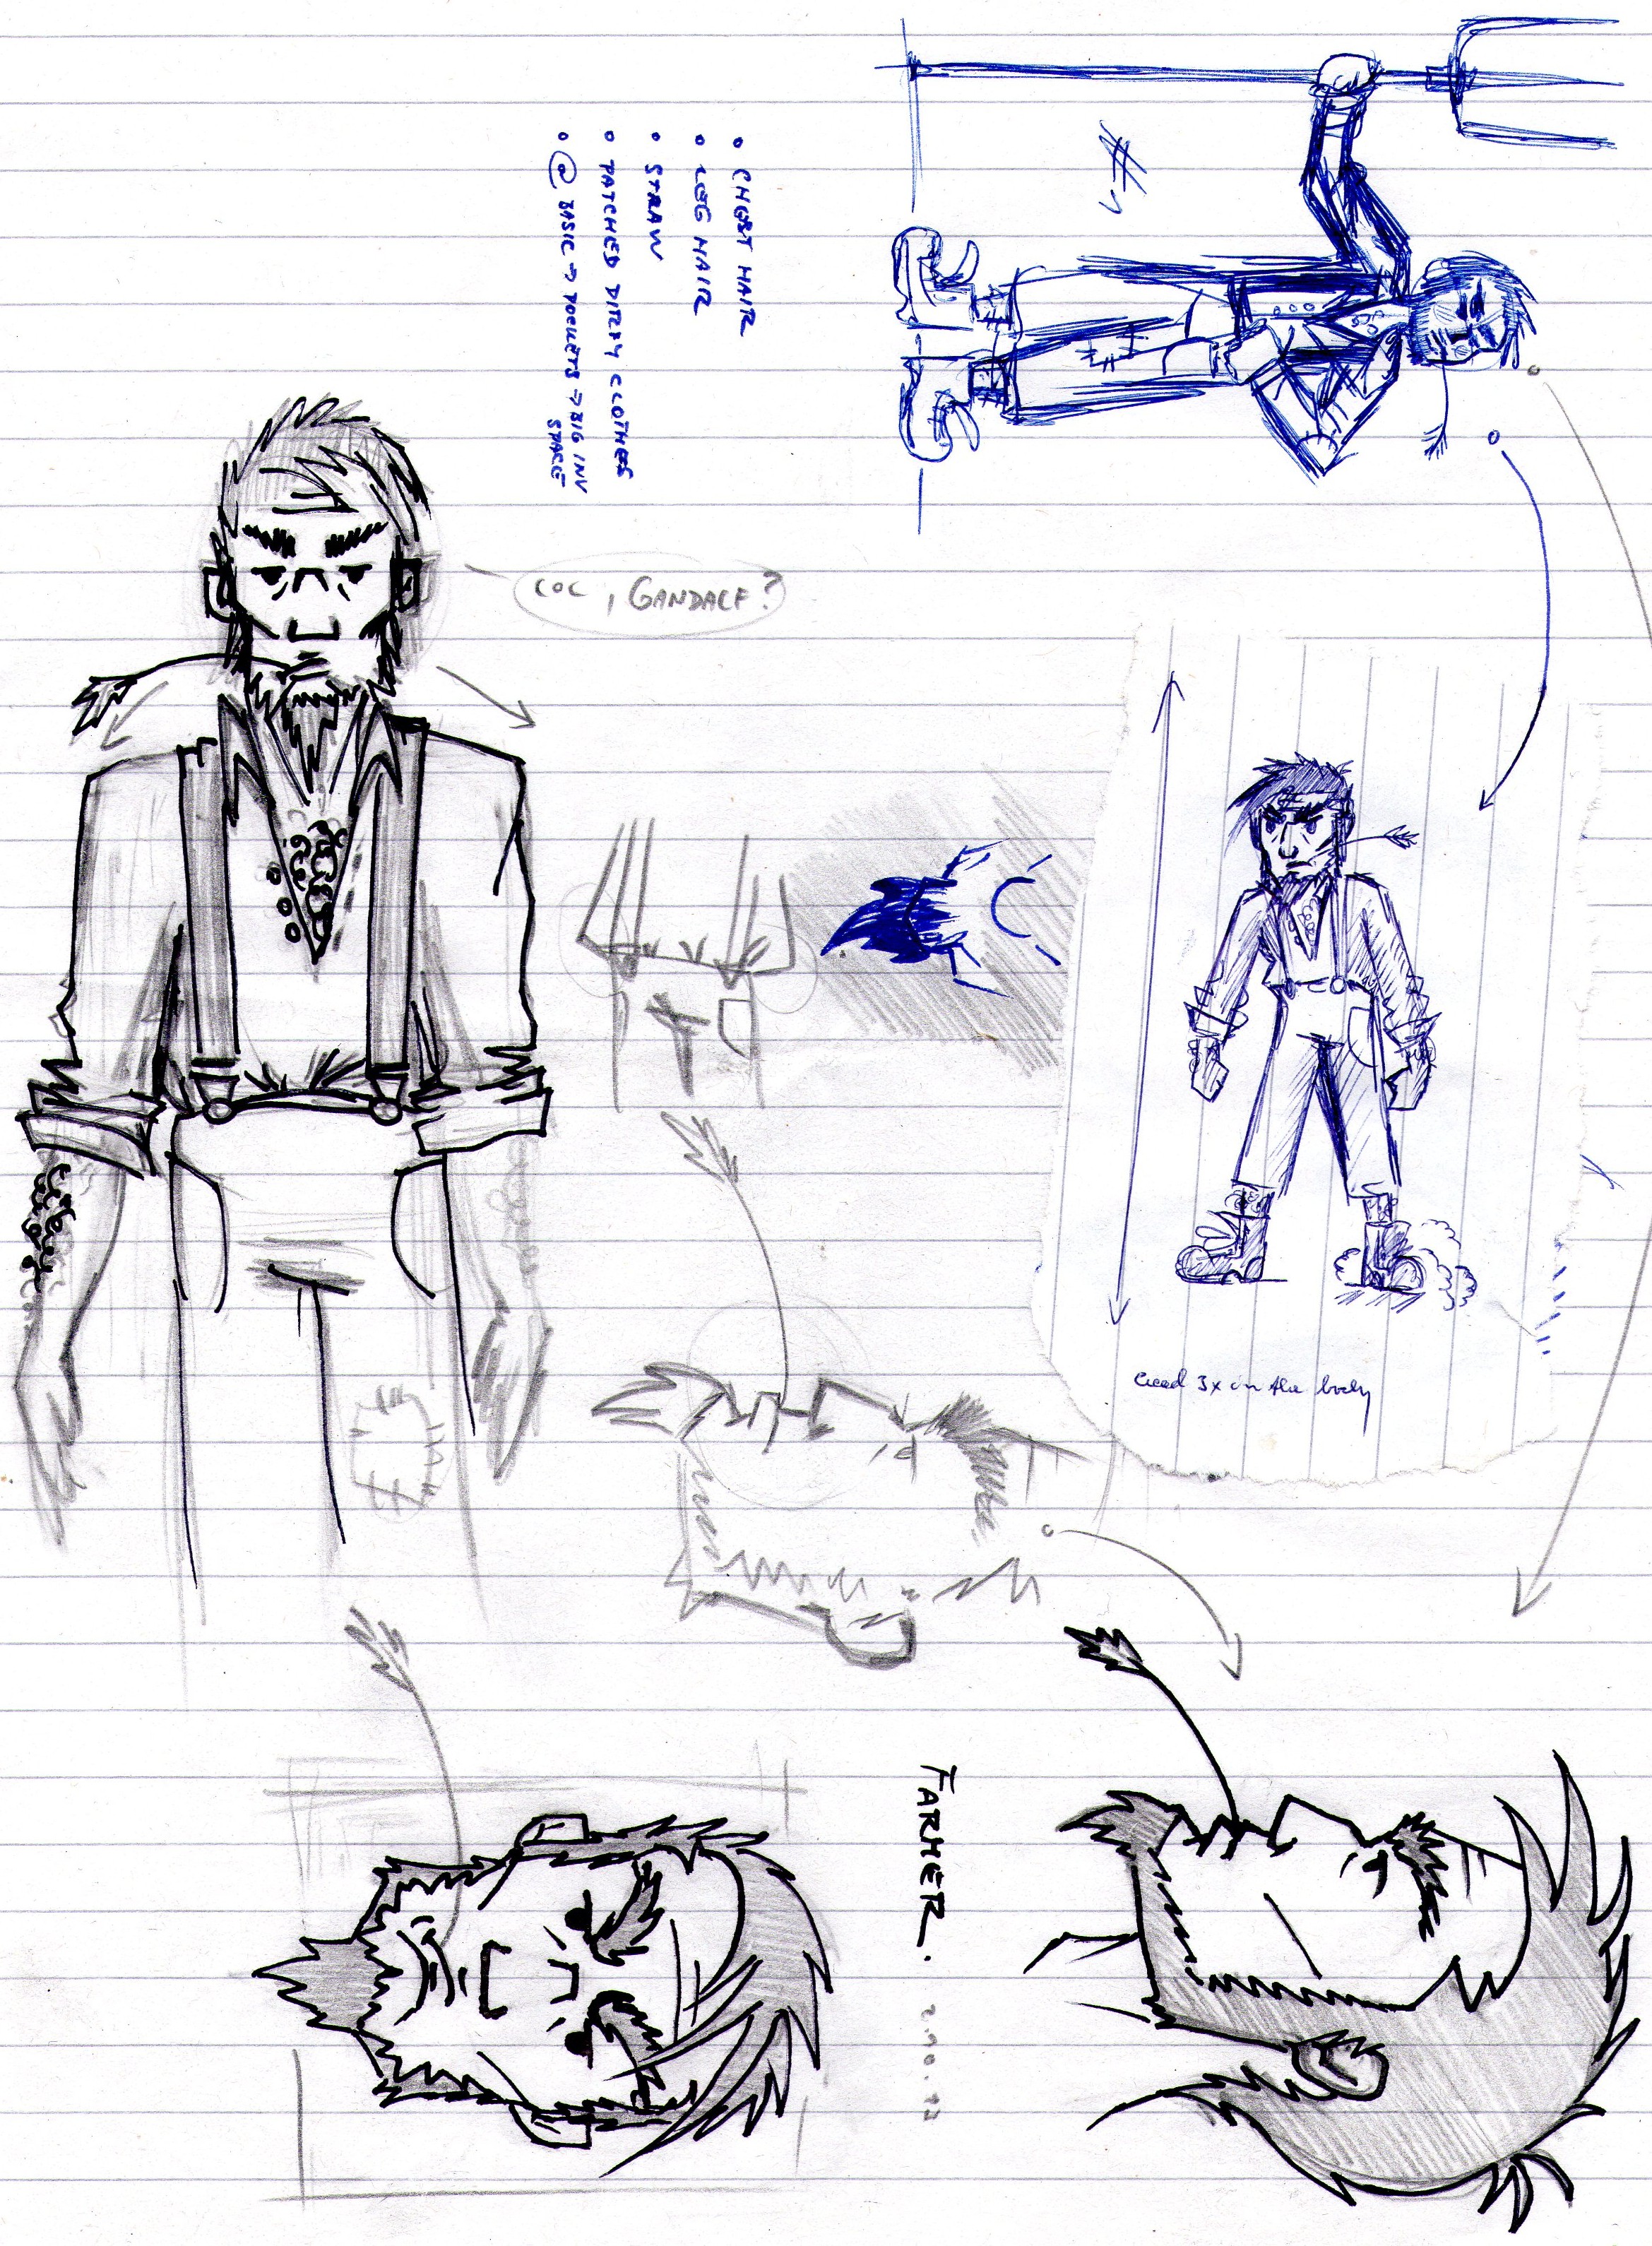 • CHEST HAIR
• LEG HAIR
• STRAW
• PATCHED DIRTY CLOTHES
• @ BASIC → POCKETS → BIG INV
SPACE
LOL, GANDALF?
Head 3x in the body
FARMER.